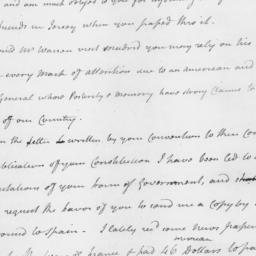 and am much obliged to you for
friends in Jersey when you passed thro' it.
Mr Warren visit you may rely on his
every mark of attention due to an american and
General whose Posterity & memory have strong Claims to
of our Country.
the letter written by your Convention to their Con
publication of your Constitution I have been led to
of your form of Government, and
request the favor of you to send me a copy by
to Spain. I lately recd some news papers
france & paid 46 Dollars